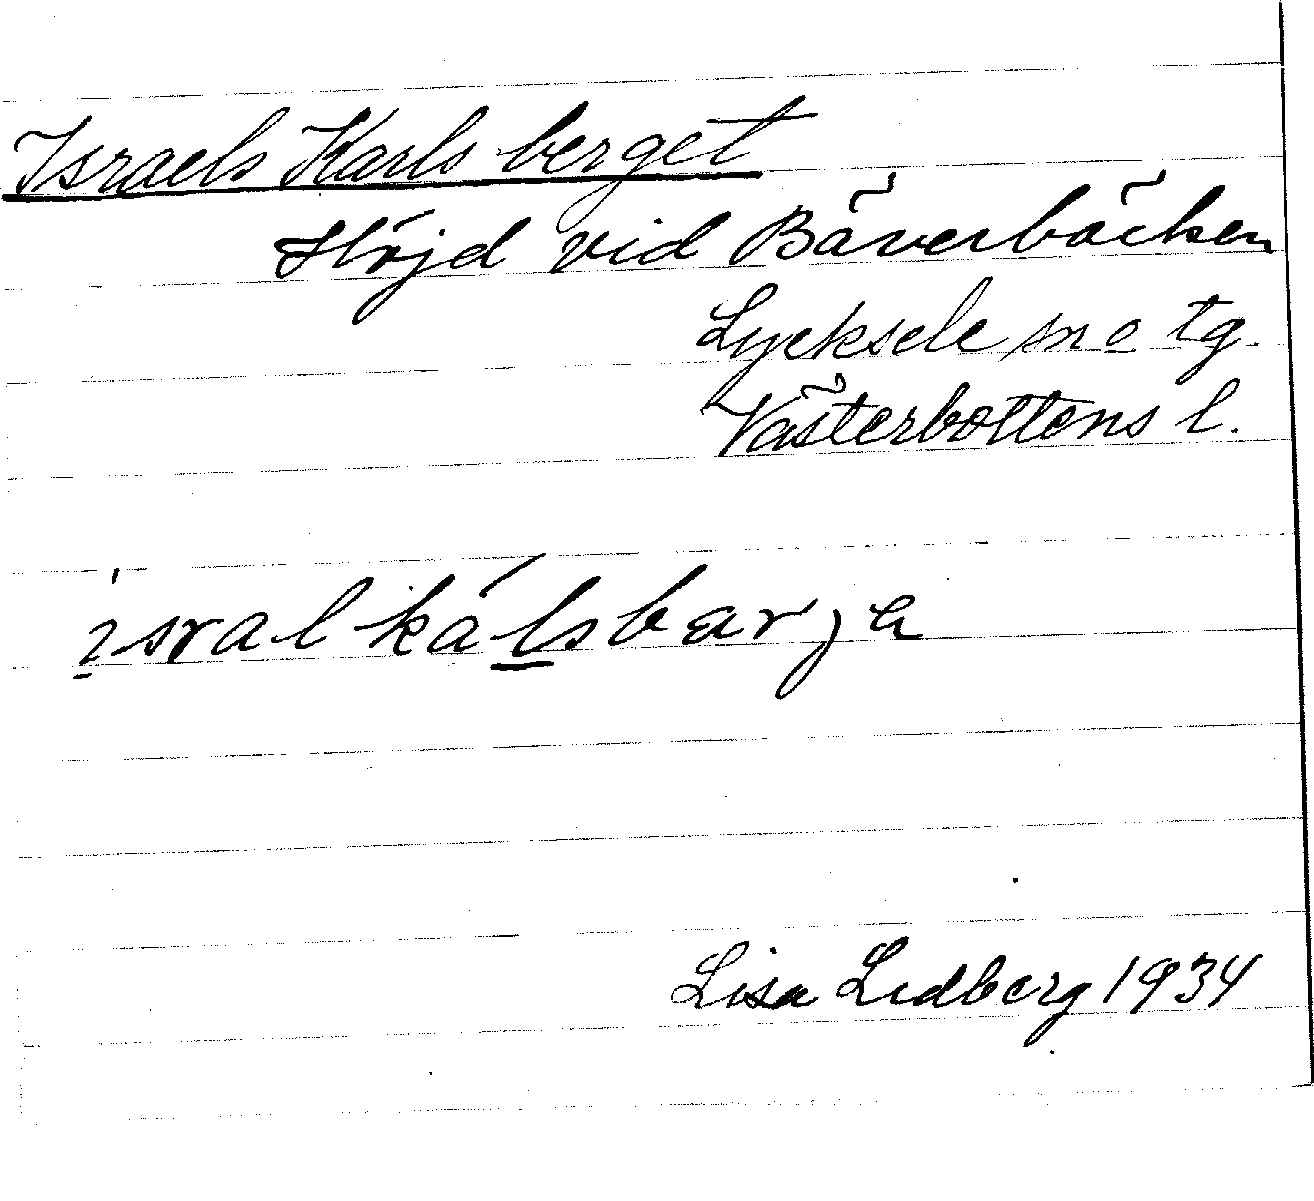 Israels Karls berget
Höjd vid Bäverbäcken
Lycksele sn o tg.
Västerbottens l.
ísralkálsbarja
Lisa Lidberg 1934